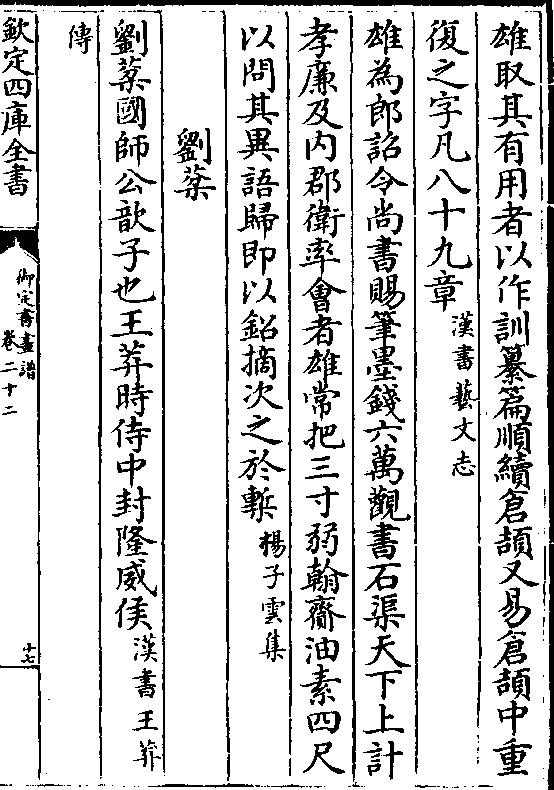 雄取其有用者以作訓纂篇順續倉頡又易倉頡中重
復之字凡八十九章漢書藝文志
雄為郎詔令尚書賜筆墨錢六萬觀書石渠天下上計
孝廉及内郡衛率會者雄常把三寸弱翰齎油素四尺
以問其異語歸即以鉛摘次之於槧楊子雲集
劉棻
劉棻國師公歆子也王莽時侍中封隆威侯漢書王莽
傳
欽定四庫全書
御定書畫譜
卷二十二
十七